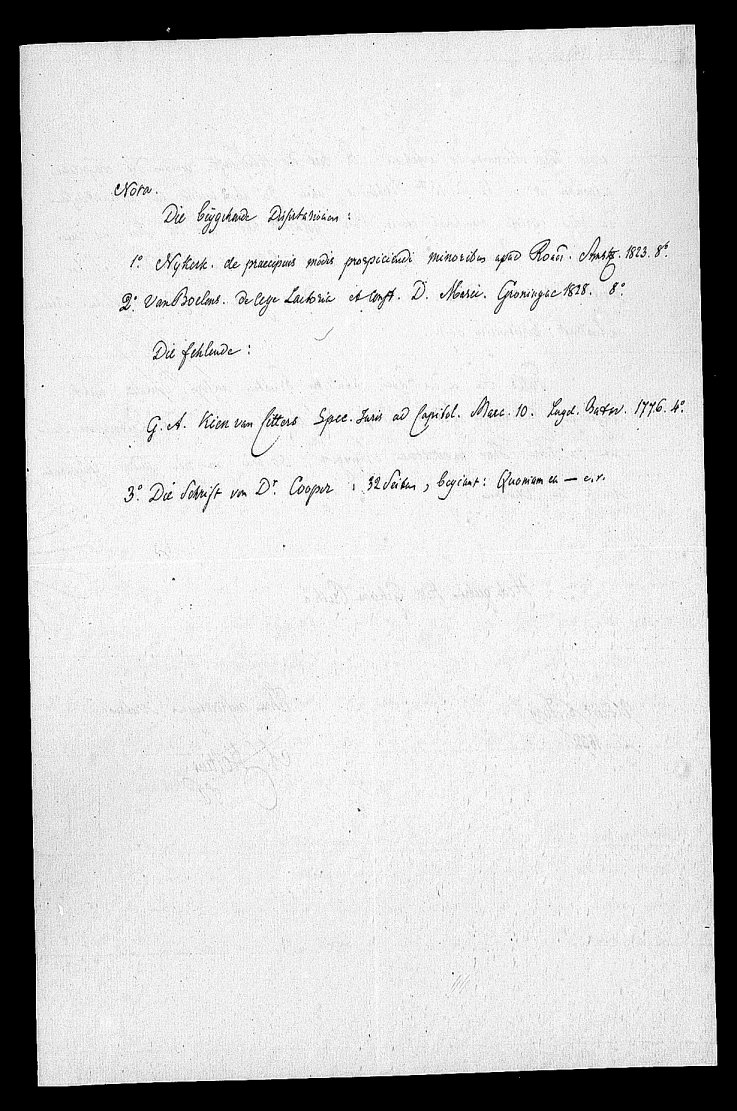 Nota.
Die beygehende Dissertationen:
1º. Nykerk. de praecipuis modis prospiciendi minoribus apud Rom. Amst. 1823. 8º.
2º. Van Boelens. de lege Laetoria et Const. D. Marci. Groningae 1828. 8º.
Die fehlende:
G. A. Kien van Citters Spec. Juris ad Capitol. Marc. 10. Lugd. Batav. 1776. 4º.
3º. Die Schrift von Dr. Cooper: 32 Seiten, beginnt: Quoniam ea — e.r.